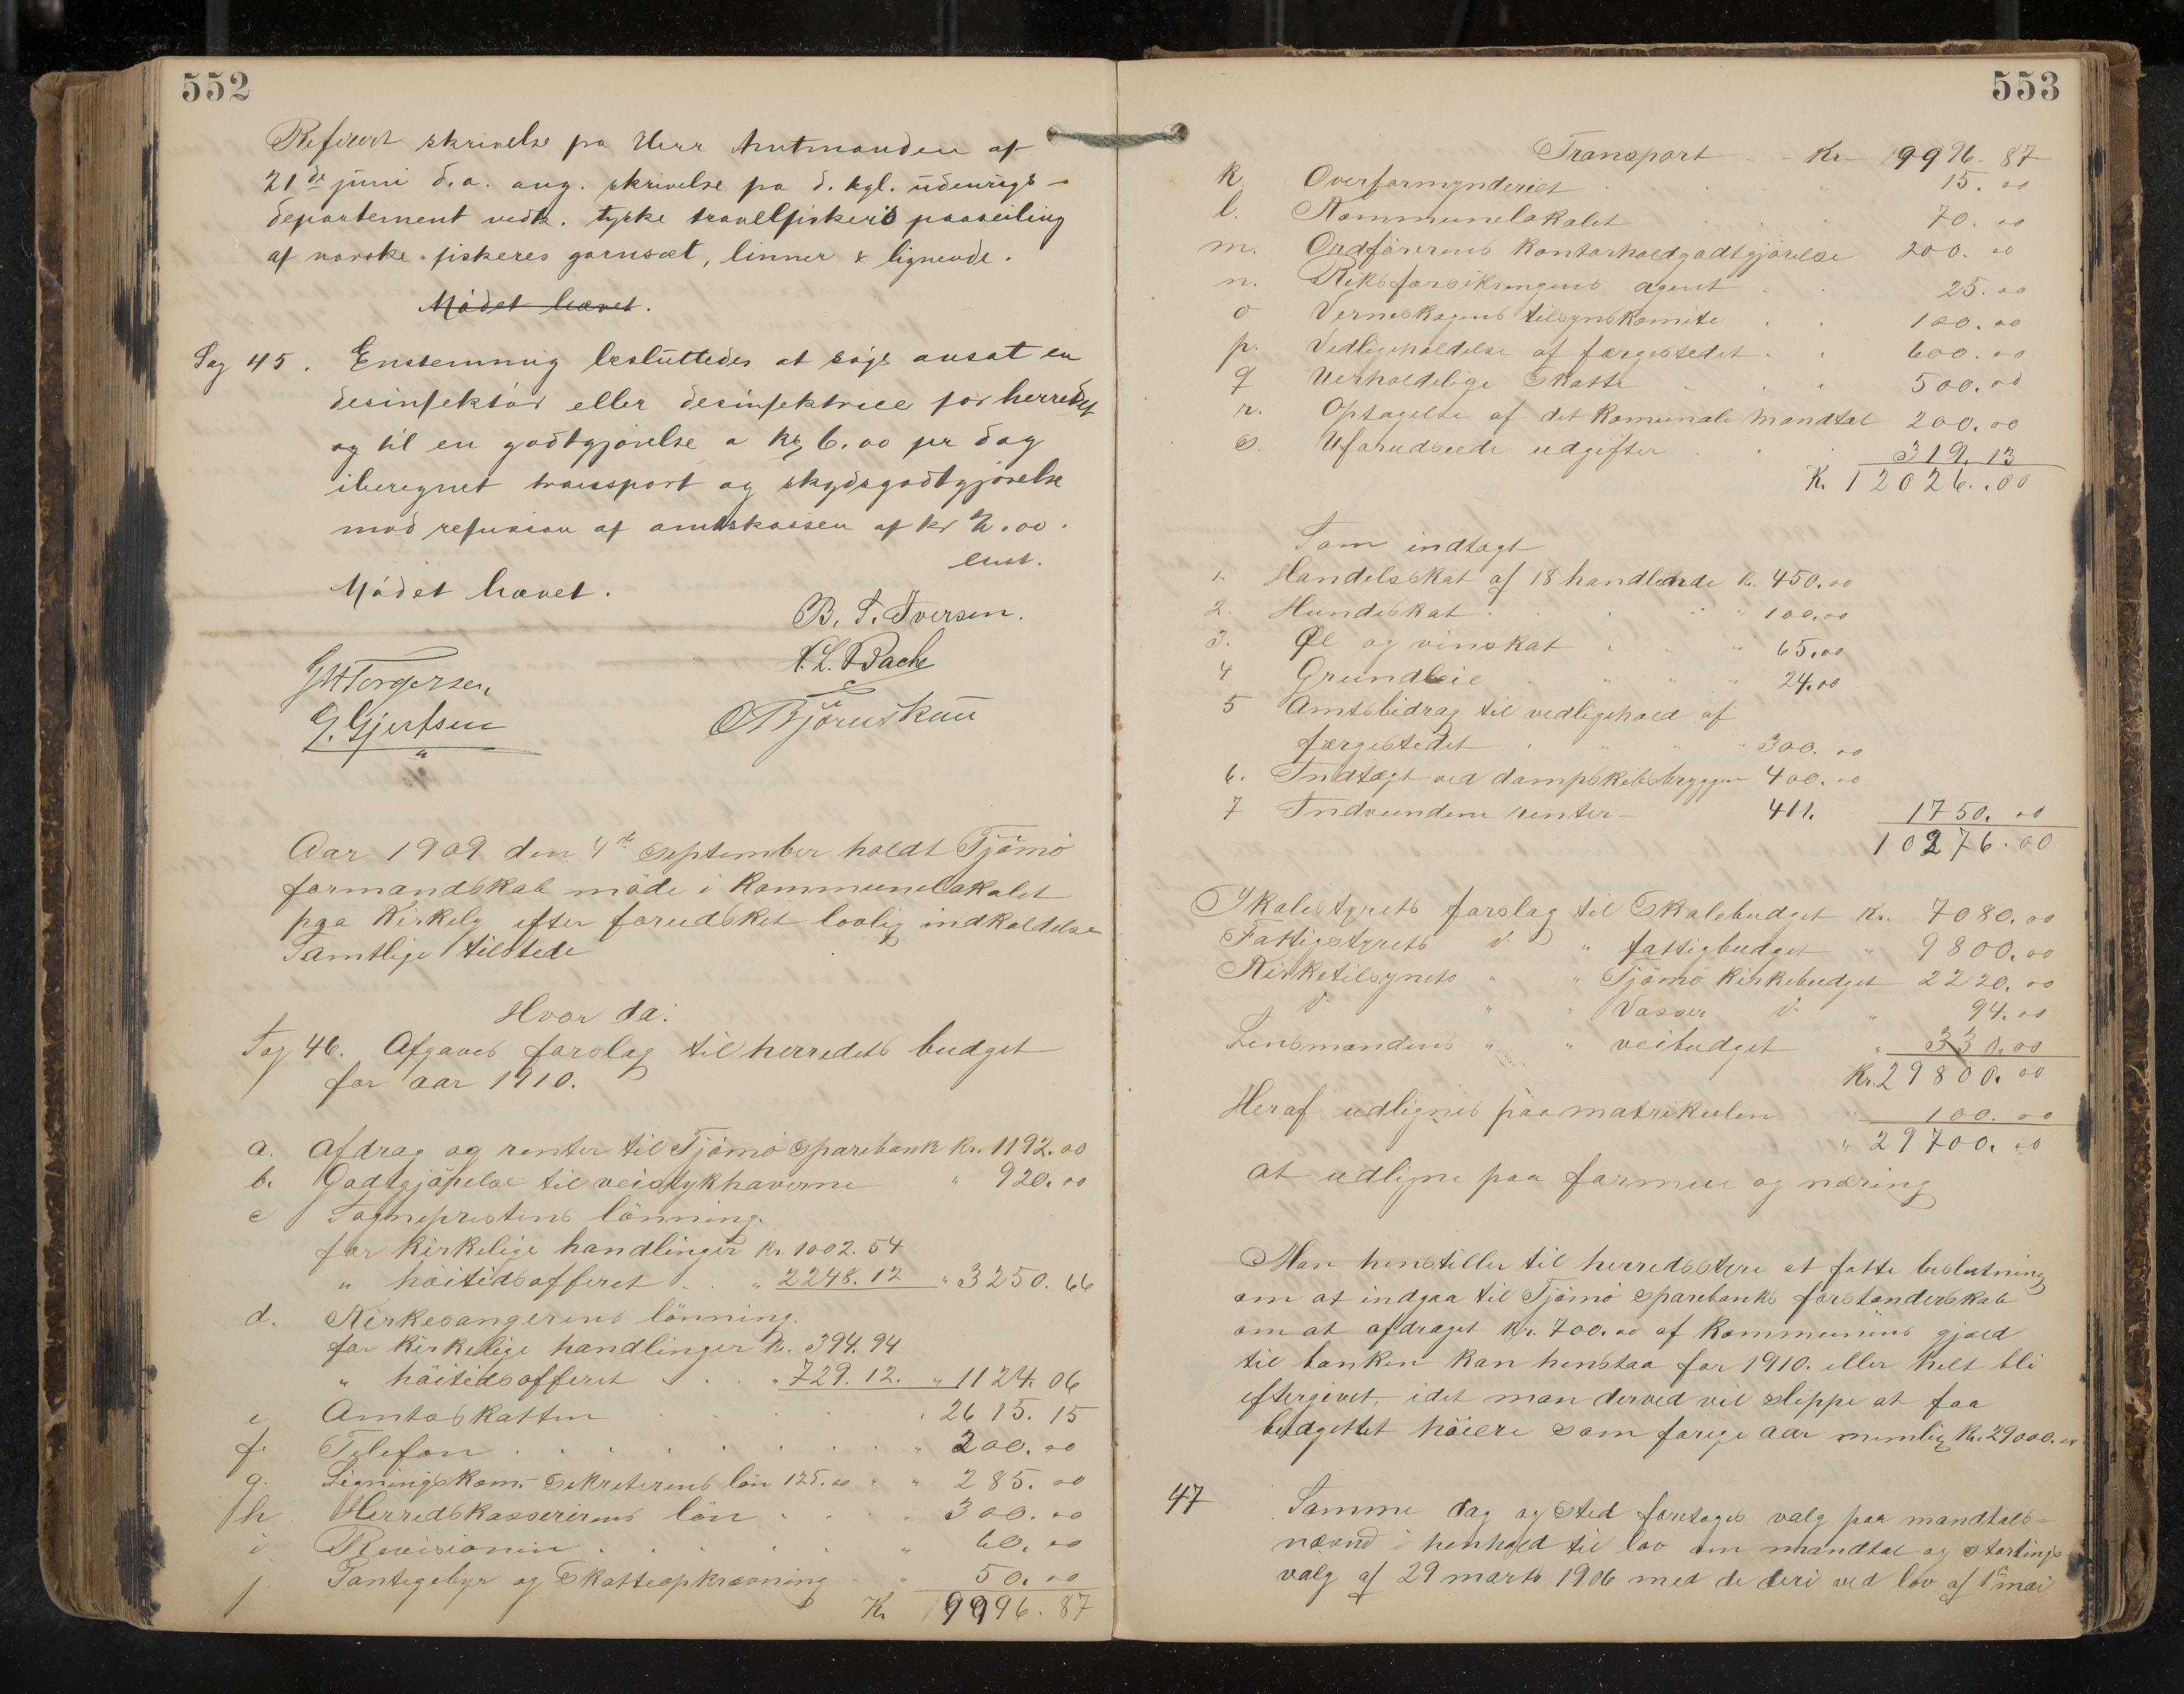 552
Refirert skrivelse fra Herr Amtmanden af
21de juni d.a. ang. skrivelse fra d. kgl. udenrigs-
departement vedk. tyske travlfiskeris paaseiling
af norske fiskeres garnsæt, linner & lignende.
Mödet hævet.
Sag 45. Enstemmig besluttedes at söge ansat en
desinfektör eller desinfektrice for herredet
og til en godtgjörelse a kr 6.00 pr dag
iberegnet transport og skydsgodtgjörelse
mod refusion af amtskassen af kr 2.00.
enst.
Mödet hævet.
B. T. Iversen.
A. L. Bache
G H Torgersen,
G. Gjertsen
O Bjørnskau
Aar 1909 den 4de september holdt Tjömö
formandskab möde i Kommunelokalet
paa Kirkely efter forudsket lovlig indkaldelse
Samtlige tilstede
Hvor da:
Sag 46. Afgaves forslag til herredets budget
for aar 1910.
a. Afdrag og renter til Tjömö sparebank Kr. 1192.00
b. Godtgjörelse til veistykhaverne " 920.00
c Sogneprestens lönning.
for kirkelige handlinger Kr. 1002.54
" höitidsofferet . . " 2248.12 " 3250.66
d. Kirkesangerens lönning.
for kirkelige handlinger Kr. 394.94
" höitidsofferet . . . " 729.12. " 1124.06
e Amtsskatten . . . . . 2615.15
f. Telefon . . . . . . . . " 200.00
g. Ligningskom.- sekreterens lön 125.00 " " 285.00
h Herredskassererens lön . . . " 300.00
i Revisionen . . . . . " 60.00
j. Pantegebyr og Skatteopkrævning . " 50.00
Kr 9996.87
553
Transport - Kr 9996.87
k. Overformynderiet . . . " 15.00
l. Kommunelokalet . . . " 70.00
m. Ordförerens kontorholdgodtgjörelse 200.00
n. Riksforsikringens agent . . 25.00
o Verneskogens tilsynskomite . . 100.00
p. Vedligeholdelse af færgestedet . . 600.00
q Uerholdelige Skatte . . . 500.00
r. Optagelse af det Komunale mandtal 200.00
s. Uforudseede udgifter . . . 319.13
Kr. 12026.00
Som indtægt
1. Handelsskat af 18 handlende Kr. 450.00
2. Hundeskat . . . " 100.00
3. Øl og vinskat . . " 65.00
4 Grundleie . " " " 24.00
5 Amtsbidrag til vedligehold af
færgestedet . " " " 300.00
6. Indtægt ved dampskibsbryggen 400.00
7 Indvundene renter - 411. 1750.00
10276.00
Skolestyrets forslag til Skolebudget Kr. 7080.00
Fattigstyrets d. " fattigbudget " 9800.00
Kirketilsynets " " Tjömö kirkebudget 2220.00
d. " " Vasser d. " 94.00
Lensmandens " " veibudget " 330.00
Kr. 29800.00
Heraf udlignes paa matrikulen " 100.00
" 29700.00
at udligne paa formue og næring
Man henstiller til herredsstyre at fatte beslutning
om at indgaa til Tjömö sparebanks forstanderskab
om at afdraget Kr. 700.00 af Kommunens gjæld
til banken kan henstaa for 1910. eller helt bli
eftergivet, idet man derved vil slippe at faa
budgettet höiere som forige aar nemlig Kr. 29000.00
47 Samme dag og sted foretoges valg paa mandtals-
nævnd i henhold til lov om mandtal og stortings-
valg af 29 marts 1906 med de deri ved lov af 1ste mai